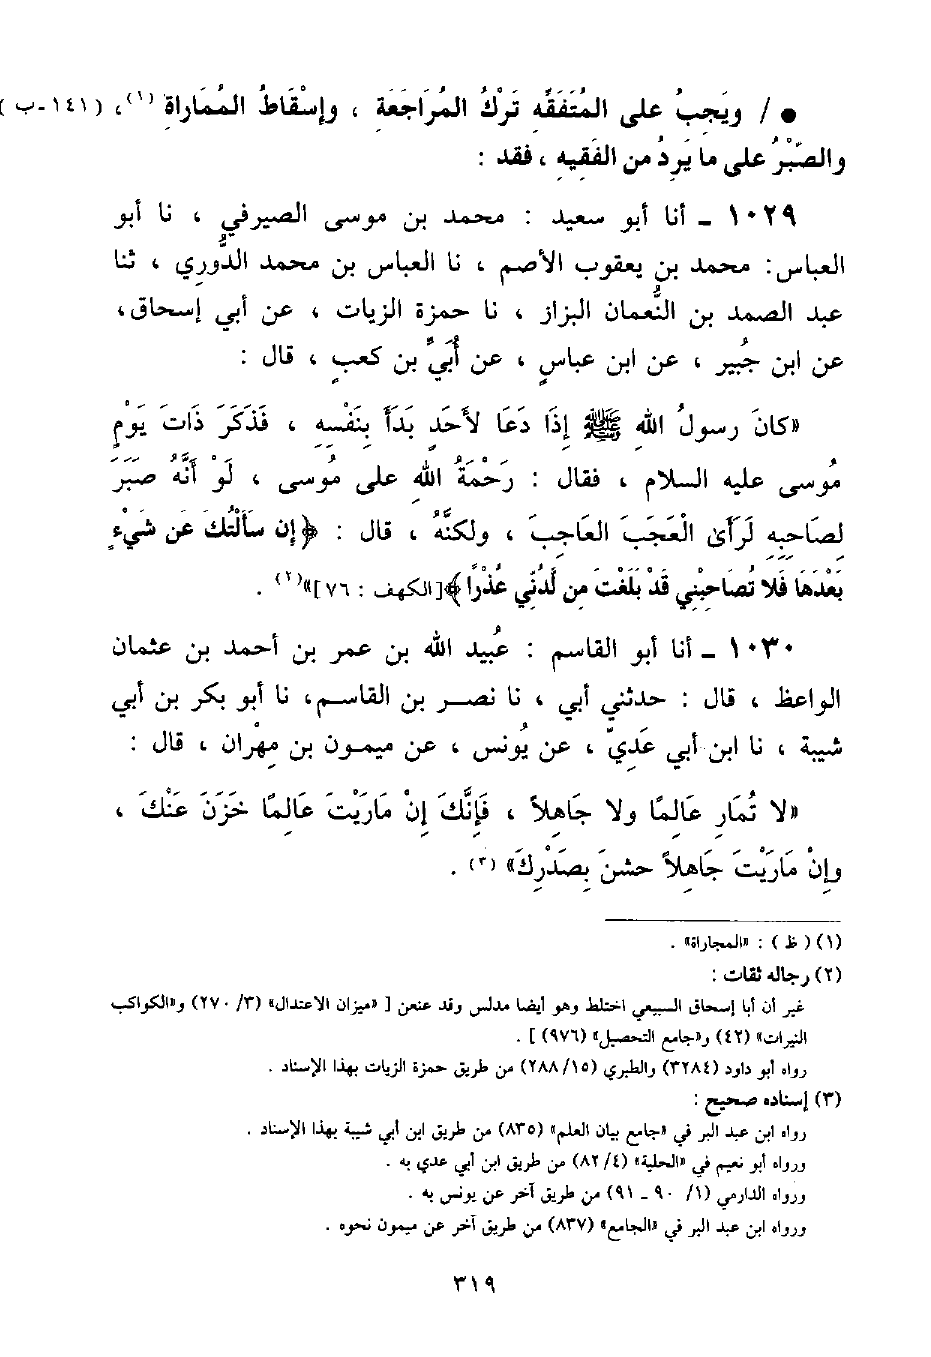 ● / ويَجبُ على المُتَفَقِّه تَرْكُ المُرَاجَعَة ، وإسْقَاطُ المُمَاراة (١)، (١٤١-ب)
والصَّبْرُ على ما يَرِدُ من الفَقِيهِ ، فقد :
١٠٢٩ ـ أنا أبو سعيد : محمد بن موسى الصيرفي ، نا أبو
العباس: محمد بن يعقوب الأصم ، نا العباس بن محمد الدُّوري ، ثنا
عبد الصمد بن النُّعمان البزاز ، نا حمزة الزيات ، عن أبي إسحاق،
عن ابن جُبير ، عن ابن عباسٍ ، عن أُبَيِّ بن كعبٍ ، قال :
«كانَ رسولُ اللهِ ﷺ إذَا دَعَا لأحَدٍ بَدَأَ بِنَفْسِهِ ، فَذَكَرَ ذَاتَ يَوْمٍ
مُوسى عليه السلام ، فقال : رَحْمَةُ اللهِ على مُوسى ، لَوْ أنَّهُ صَبَرَ
لِصَاحِبِهِ لَرَأىٰ الْعَجَبَ العَاجِبَ ، ولكنَّهُ ، قال : ﴿إن سَأَلْتُكَ عَن شَيْءٍ
بَعْدَهَا فَلا تُصَاحِبْنِي قَدْ بَلَغْتَ مِن لَّدُنِّي عُذْرًا﴾[الكهف : ٧٦]»(٢) .
١٠٣٠ ـ أنا أبو القاسم : عُبيد الله بن عمر بن أحمد بن عثمان
الواعظ ، قال : حدثني أبي ، نا نصر بن القاسم، نا أبو بكر بن أبي
شيبة ، نا ابن أبي عَدِيٍّ ، عن يُونس ، عن ميمون بن مِهْران ، قال :
«لا تُمَارِ عَالِمًا ولا جَاهِلاً ، فَإِنَّكَ إنْ مَارَيْتَ عَالِمًا خَزَنَ عَنْكَ ،
وإنْ مَارَيْتَ جَاهِلاً خشنَ بِصَدْرِكَ» (٣) .
(١) ( ظ ) : «المجاراة» .
(٢) رجاله ثقات :
غير أن أبا إسحاق السبيعي اختلط وهو أيضا مدلس وقد عنعن [ «ميزان الاعتدال» (٣/ ٢٧٠) و«الكواكب
النيرات» (٤٢) و«جامع التحصيل» (٩٧٦) ] .
رواه أبو داود (٣٢٨٤) والطبري (١٥/ ٢٨٨) من طريق حمزة الزيات بهذا الإسناد .
(٣) إسناده صحيح :
رواه ابن عبد البر في «جامع بيان العلم» (٨٣٥) من طريق ابن أبي شيبة بهذا الإسناد .
ورواه أبو نعيم في «الحلية» (٤/ ٨٢) من طريق ابن أبي عدي به .
ورواه الدارمي (١/ ٩٠ ـ ٩١) من طريق آخر عن يونس به .
ورواه ابن عبد البر في «الجامع» (٨٣٧) من طريق آخر عن ميمون نحوه .
٣١٩